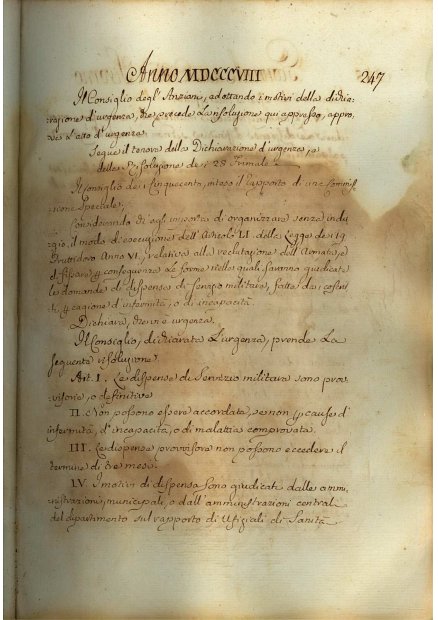 Anno MDCCCVIII
247
Il Consiglio degl' Anziani, adottando i motivi della dichia-
razione d'urgenza, che precede la risoluzione qui appresso, appro-
va l'atto d'urgenza.
Segue il tenore della Dichiarazione d'urgenza, e
della Risoluzione de i 28 Frimale
Il Consiglio de i Cinquecento, inteso il rapporto di una Commis-
sione Speciale;
Considerando ch'egl' importa di organizzare senza indu-
gio, il modo d'esecuzione dell' Articolo LI. della Legge de i 19
Fruttidoro Anno VI, relativa alla reclutazione dell' Armata, e
di fissare in conseguenza le forme nelle quali saranno giudicate
le domande di dispensa di servizio militare, fatte dai coscrit-
ti, p cagione d'infermità, o di incapacità.
Dichiara, che vi è urgenza.
Il Consiglio, dichiarata l'urgenza, prende la
seguente risoluzione
Art. I. Le dispense di Servizio militare sono prov-
visorie, o definitive
II. Non possono essere accordate, se non p cause d'
infermità, d'incapacità, o di malattia comprovata.
III. Le dispense provvisorie non possono eccedere il
termine di tre mesi.
IV. I motivi di dispensa sono giudicati dalle ammi-
nistrazioni municipali, o dall'amministrazioni centrali
del dipartimento sul rapporto di Ufiziali di Sanità